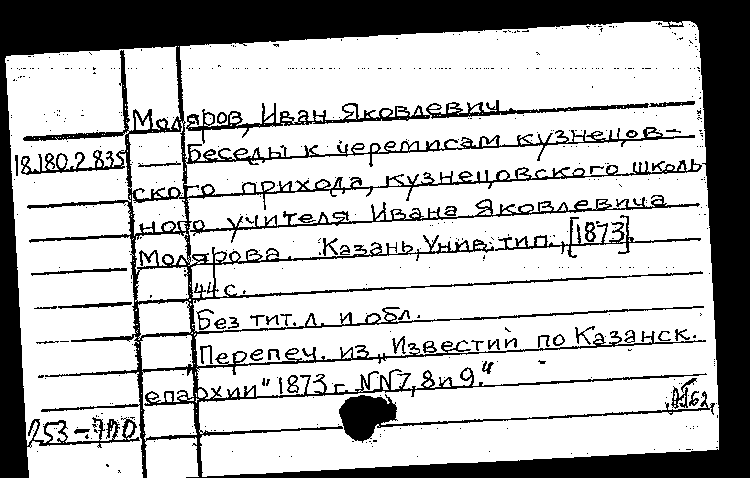 Моляров, Иван Яковлевич.
18.180.2.835 Беседы к черемисам кузнецов-
ского прихода, кузнецовского школь
ного учителя Ивана Яковлевича
Молярова. Казань, Унив. тип., [1873].
44 с.
Без тит. л. и обл.
„Перепеч. из „Известий по Казанск.
епархии" 1873 г. NN7, 8 и 9."